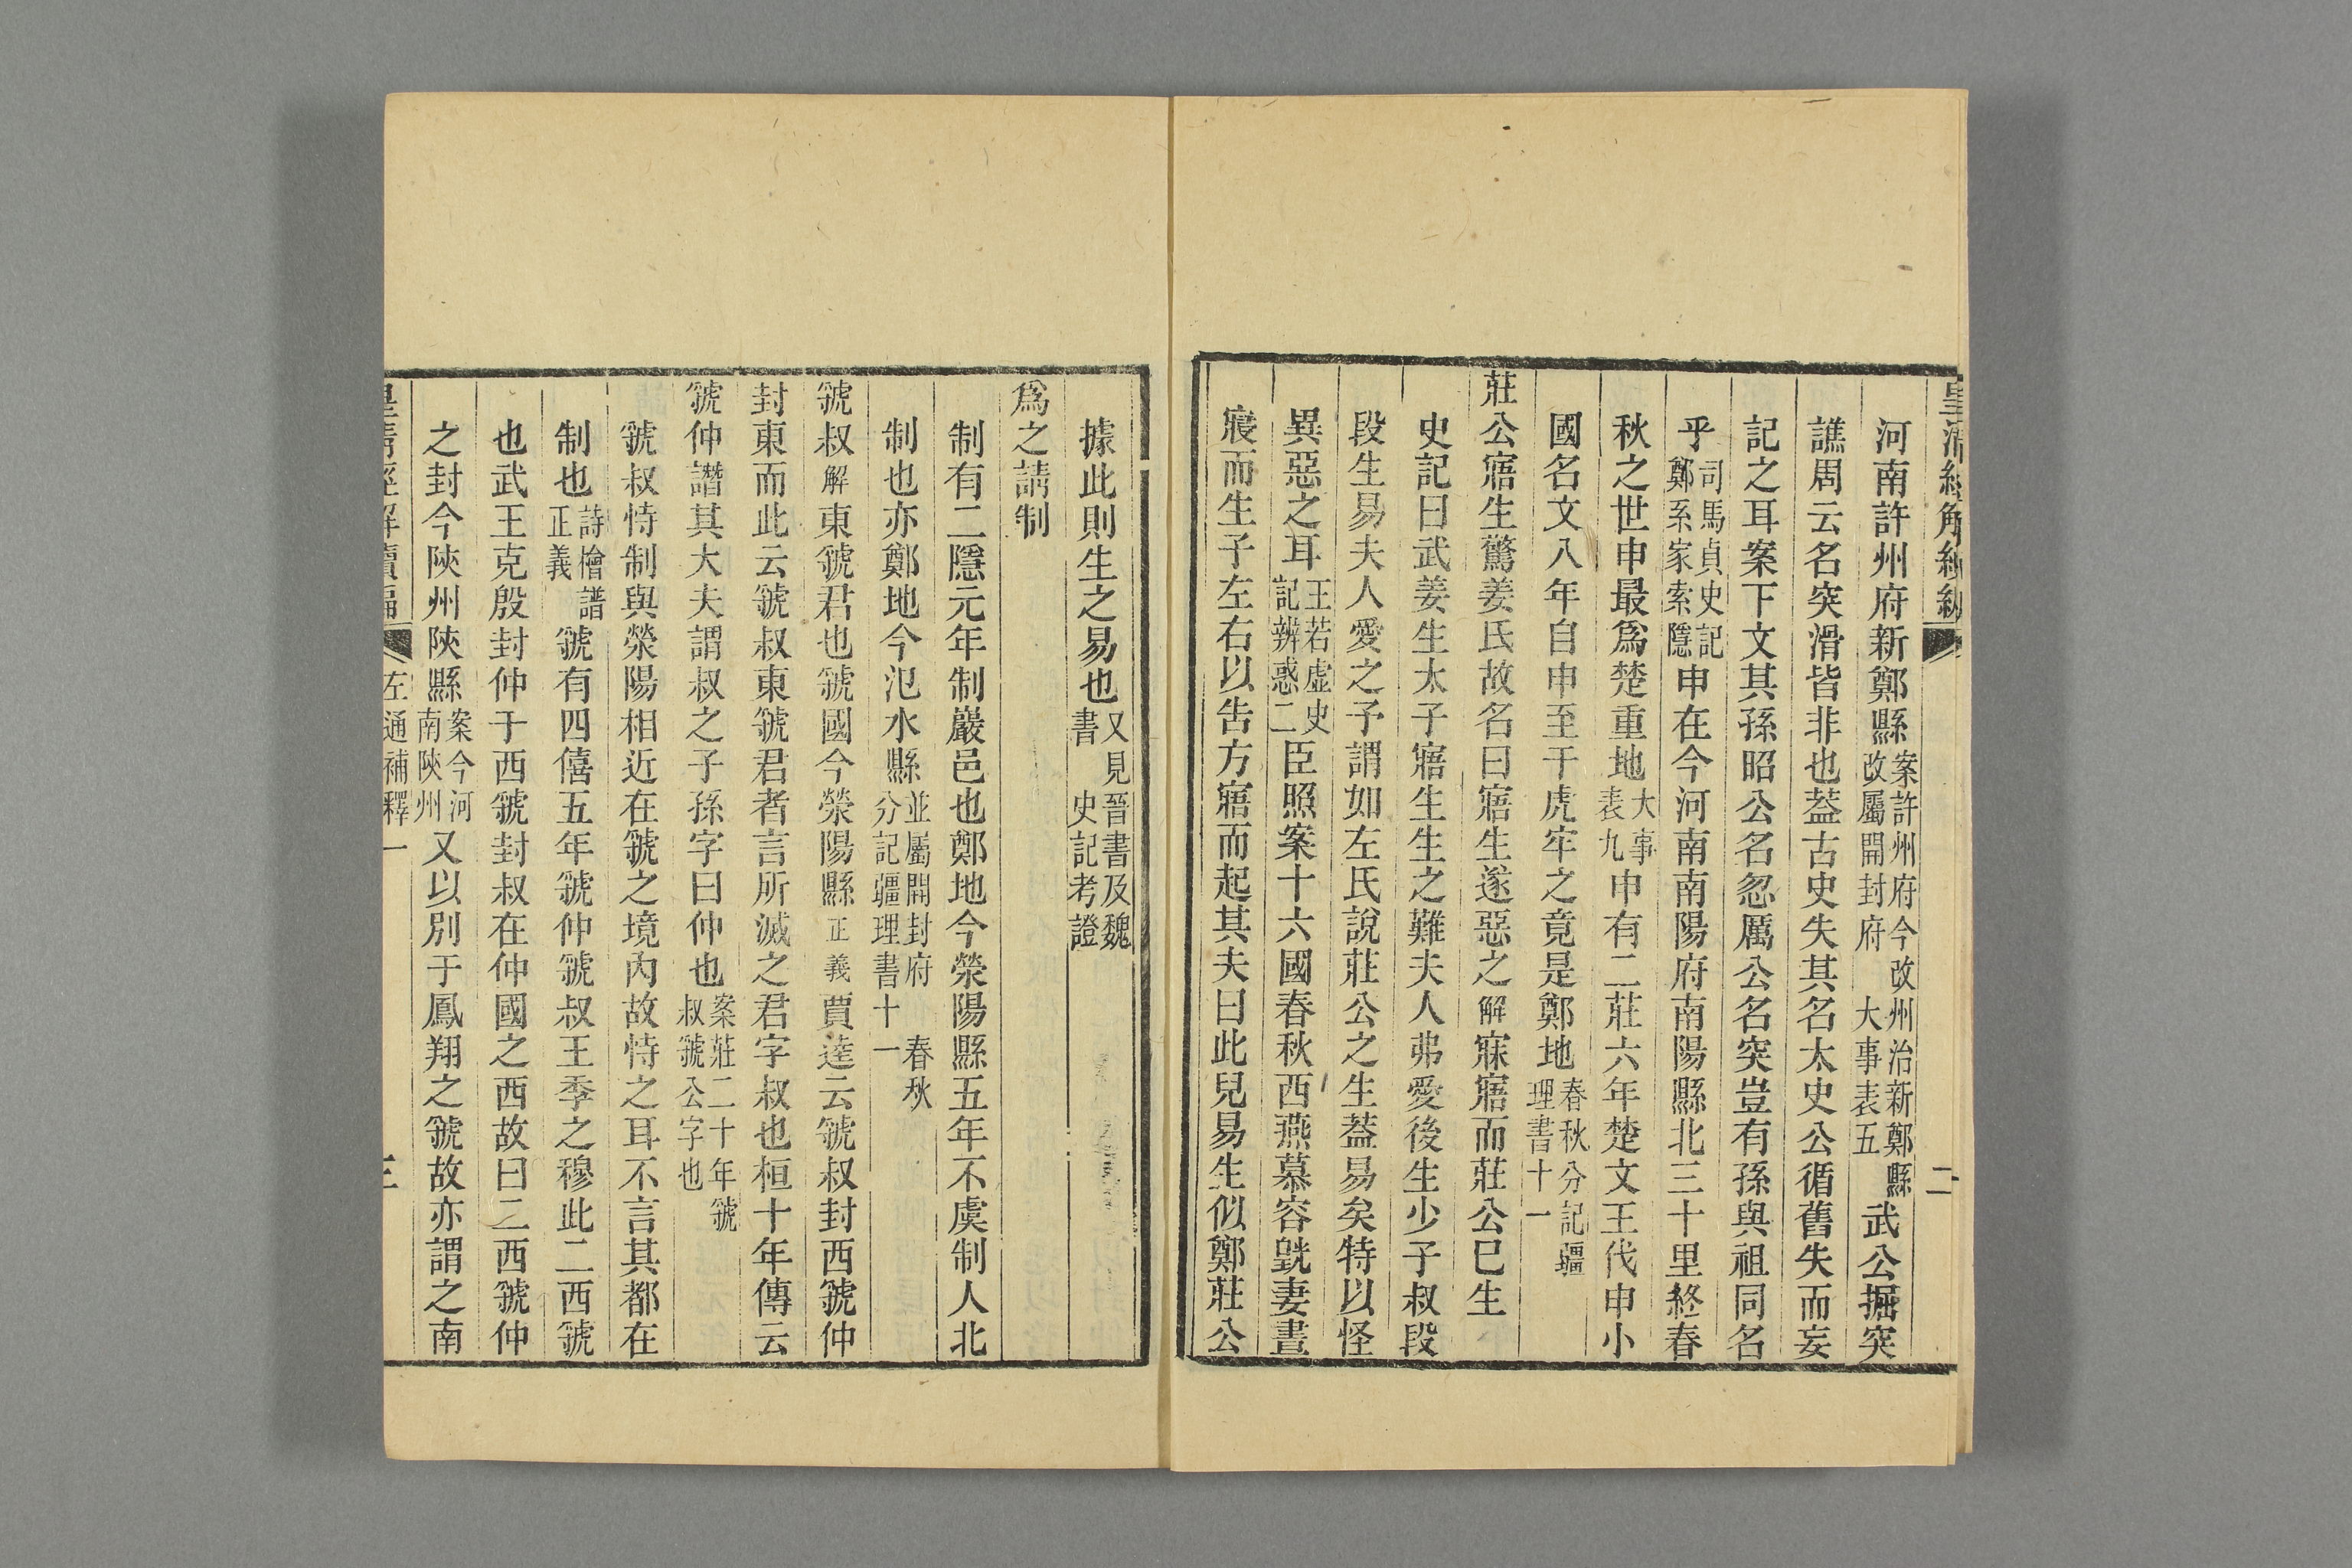 皇清經解續編
二
河南許州府新鄭縣案許州府今改州治新鄭縣改屬開封府 大事表五武公掘突
譙周云名突滑皆非也葢古史失其名太史公循舊失而妄
記之耳案下文其孫昭公名忽厲公名突豈有孫與祖同名
乎司馬貞史記鄭系家索隱申在今河南南陽府南陽縣北三十里終春
秋之世申最爲楚重地大事表九申有二莊六年楚文王伐申小
國名文八年自申至于虎牢之竟是鄭地春秋分記疆理書十一
莊公寤生驚姜氏故名曰寤生遂惡之解寐寤而莊公已生
史記曰武姜生太子寤生生之難夫人弗愛後生少子叔段
段生易夫人愛之予謂如左氏說莊公之生葢易矣特以怪
異惡之耳王若虛史記辨惑二臣照案十六國春秋西燕慕容皝妻晝
寢而生子左右以告方寤而起其夫曰此兒易生似鄭莊公
據此則生之易也又見晉書及魏書 史記考證
爲之請制
制有二隱元年制巖邑也鄭地今滎陽縣五年不虞制人北
制也亦鄭地今氾水縣並屬開封府 春秋分記疆理書十一
虢叔解東虢君也虢國今滎陽縣正義賈逵云虢叔封西虢仲
封東而此云虢叔東虢君者言所滅之君字叔也桓十年傳云
虢仲譖其大夫謂叔之子孫字曰仲也案莊二十年虢叔虢公字也
虢叔恃制與滎陽相近在虢之境內故恃之耳不言其都在
制也詩檜譜正義虢有四僖五年虢仲虢叔王季之穆此二西虢
也武王克殷封仲于西虢封叔在仲國之西故曰二西虢仲
之封今陝州陝縣案今河南陝州又以別于鳳翔之虢故亦謂之南
皇清經解續編
左通補釋一
三